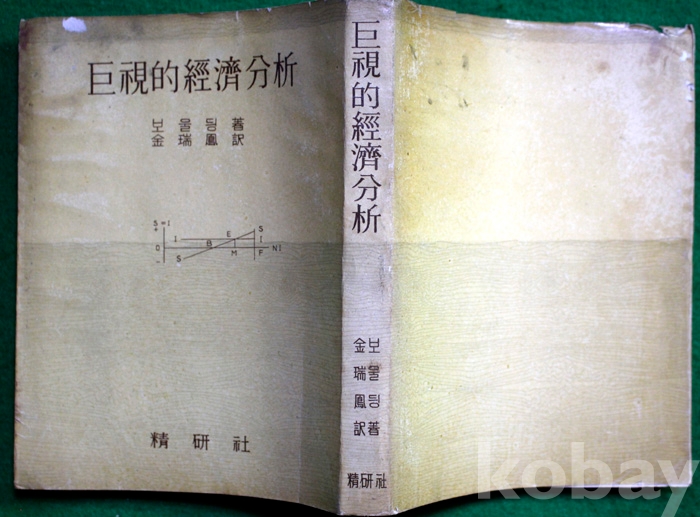 巨視的經濟分析
보울딩 著
金瑞鳳 訳
S = I
+
O
-
I
S
B
E
M
S
I
F
NI
精研社
巨視的經濟分析
보울딩 著
金瑞鳳 訳
精研社
kobay